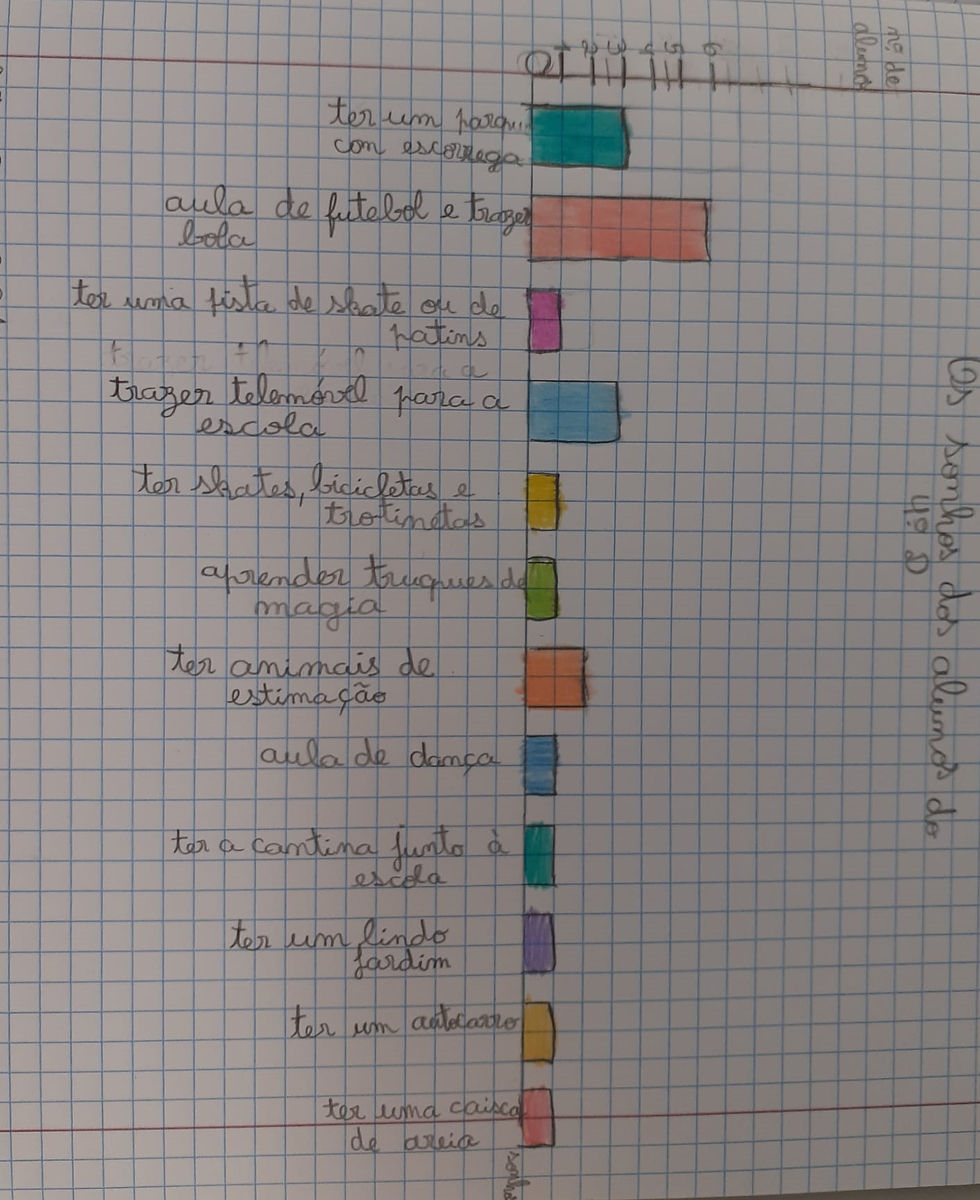 nº de
alunos
0 1 2 3 4 5 6
Os sonhos dos alunos do
4º D
ter um parque
con escorrega
aula de futebol e trazer
bola
ter uma pista de skate ou de
patins
trazer telemóvel para a
escola
ter skates, bicicletas e
trotinetas
aprender truques de
magia
ter animais de
estimação
aula de dança
ter a cantina junto à
escola
ter um lindo
jardim
ter um autocarro
ter uma caisca
de areia
sonhos